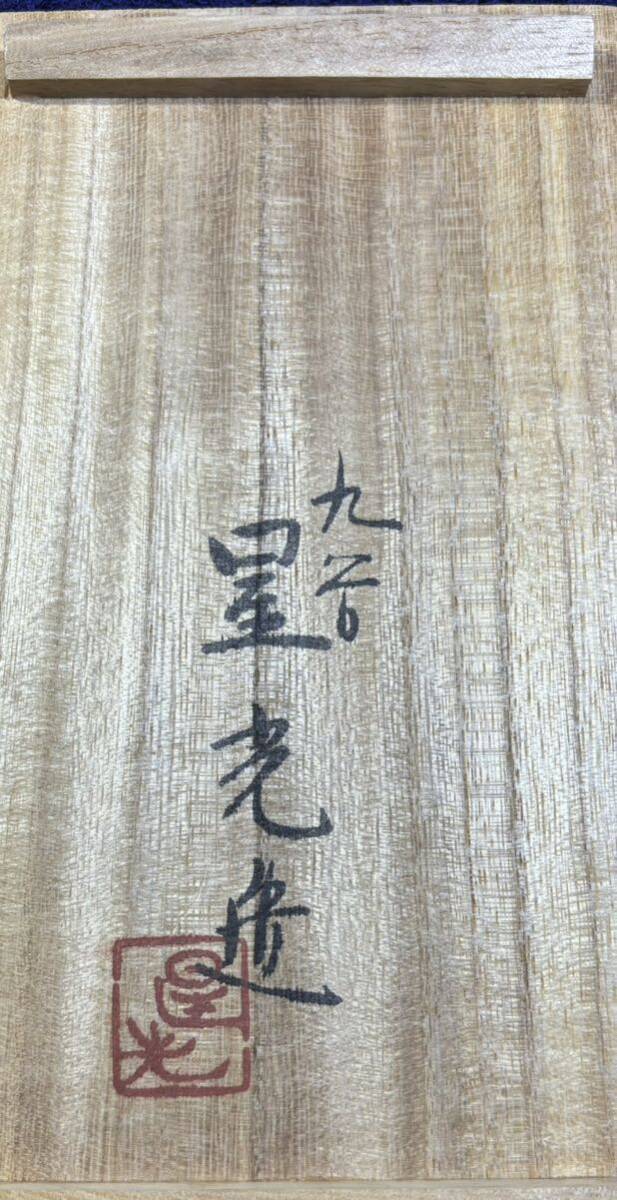 九谷
星光造
星光